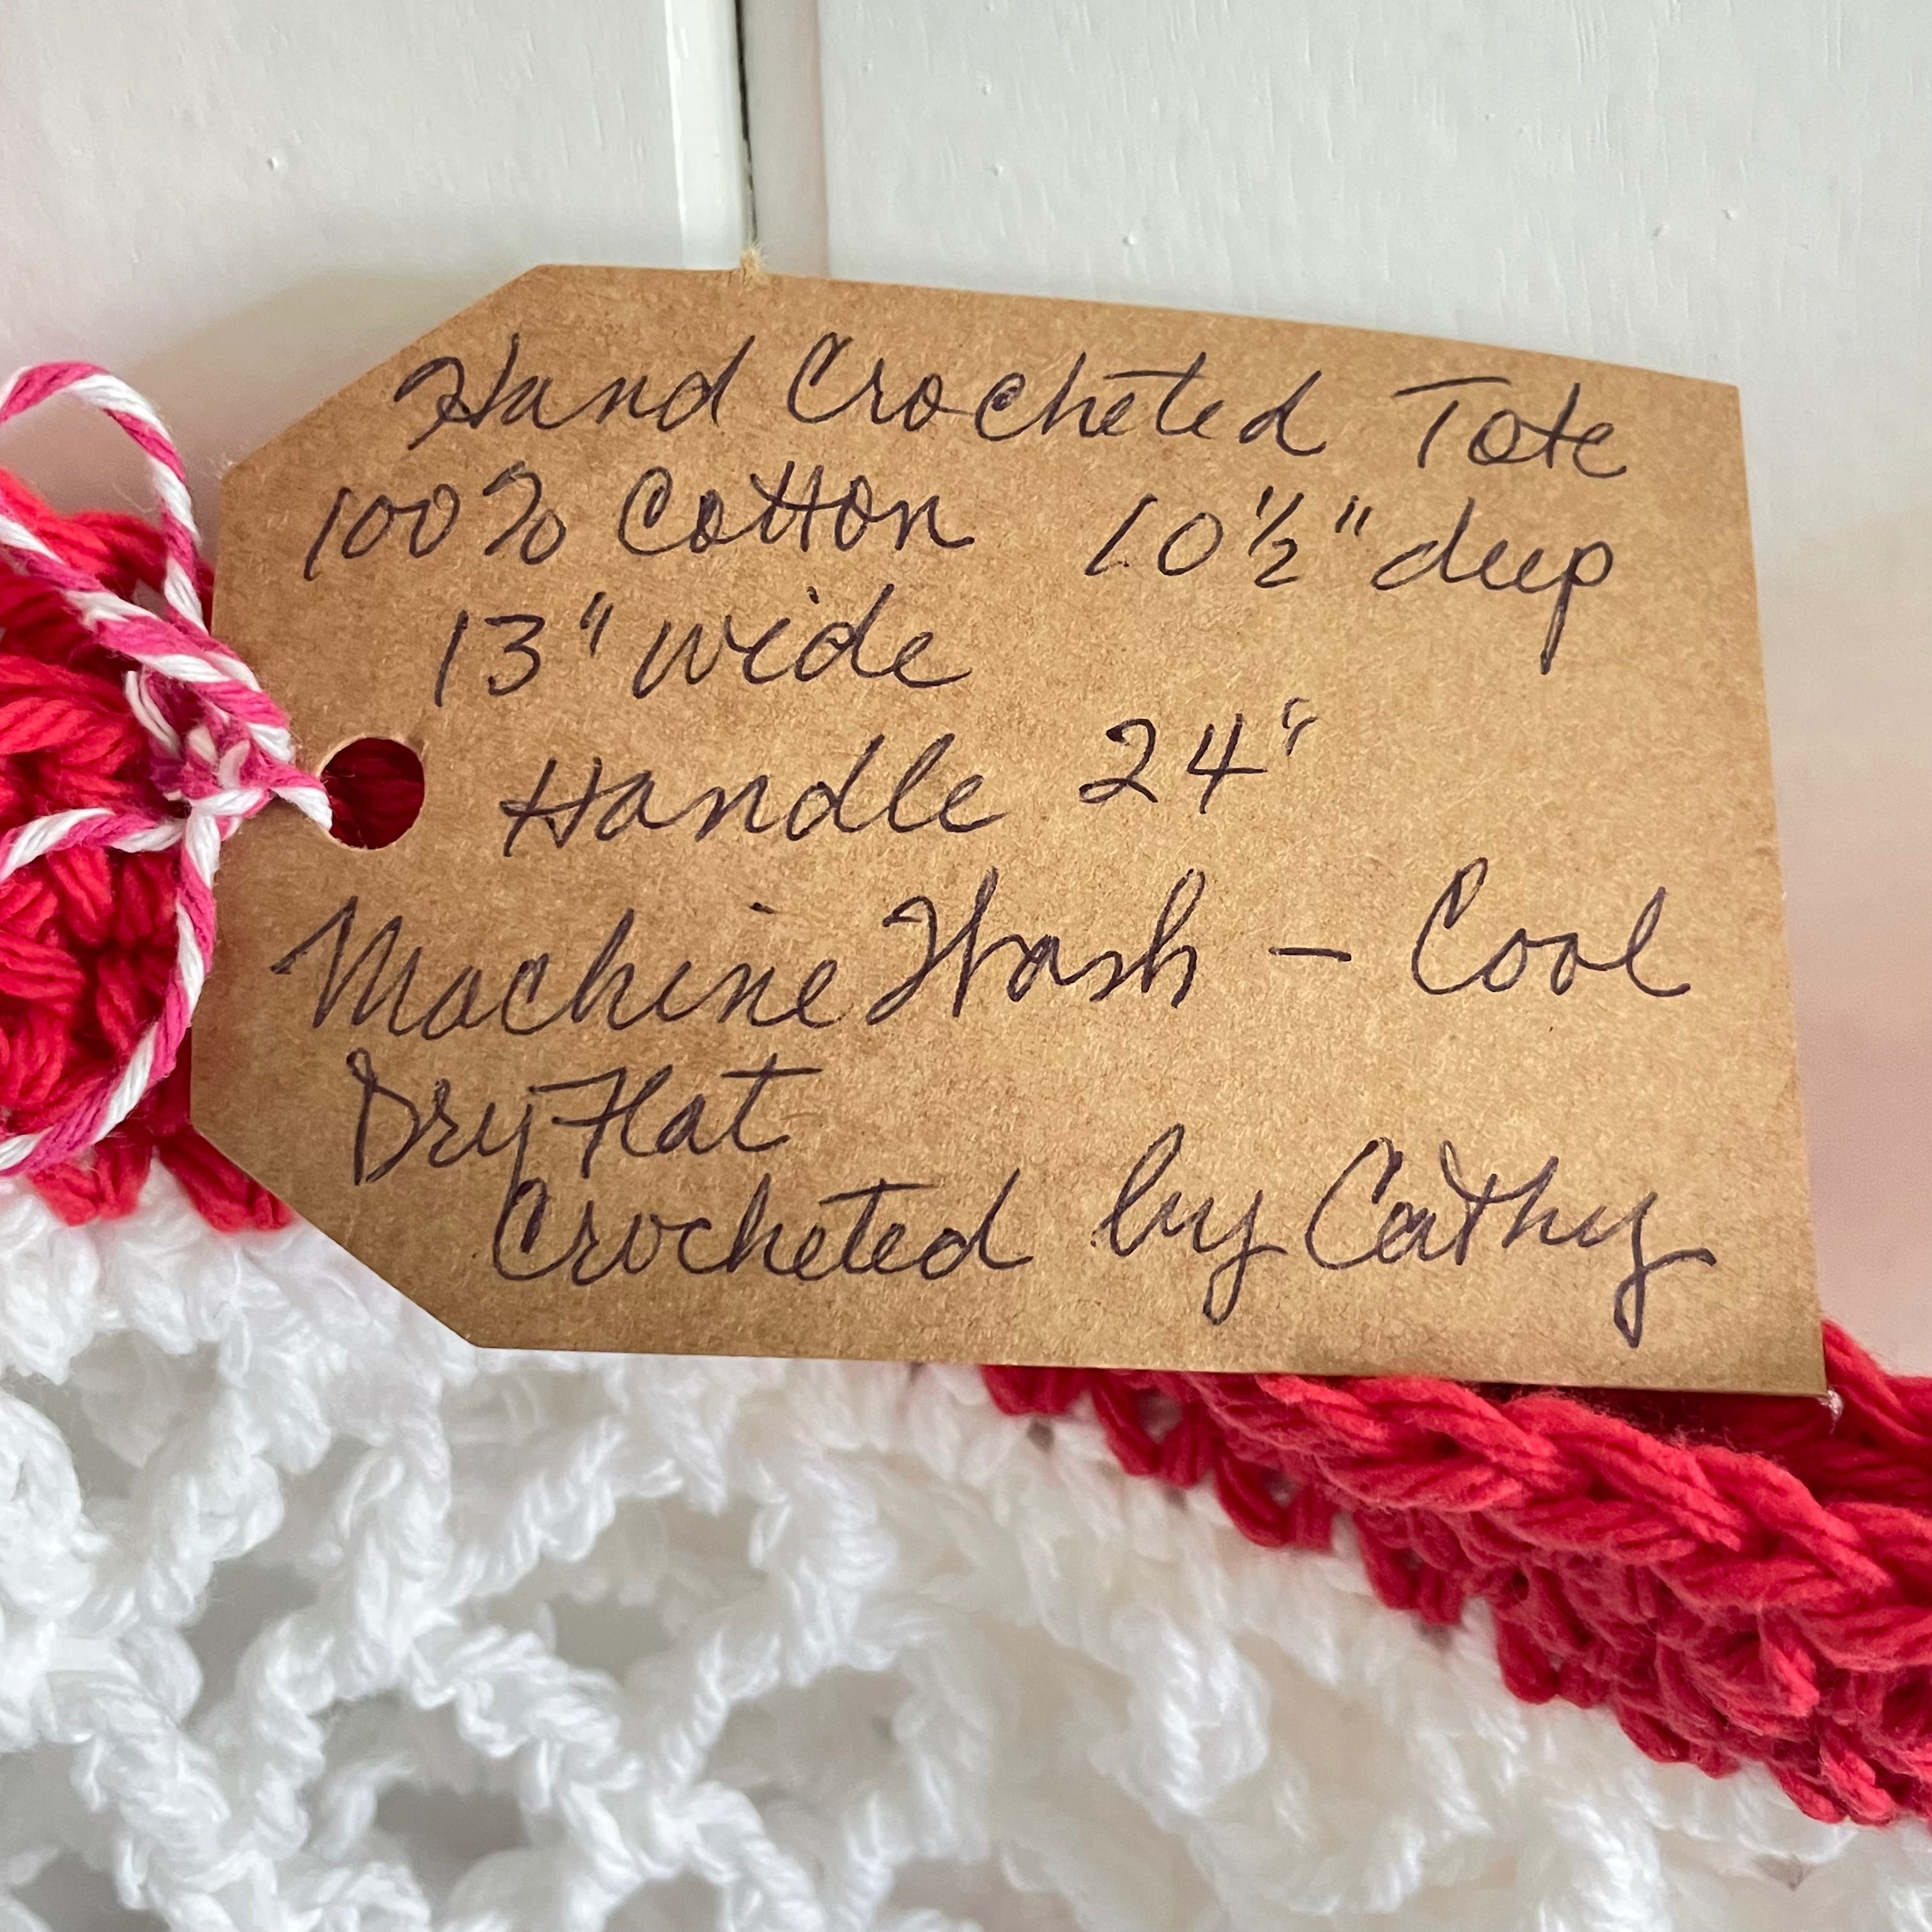 Hand Crocheted Tote
100% Cotton 10 1/2" deep
13" wide
Handle 24"
Machine Wash - Cool
Dry Flat
Crocheted by Cathy